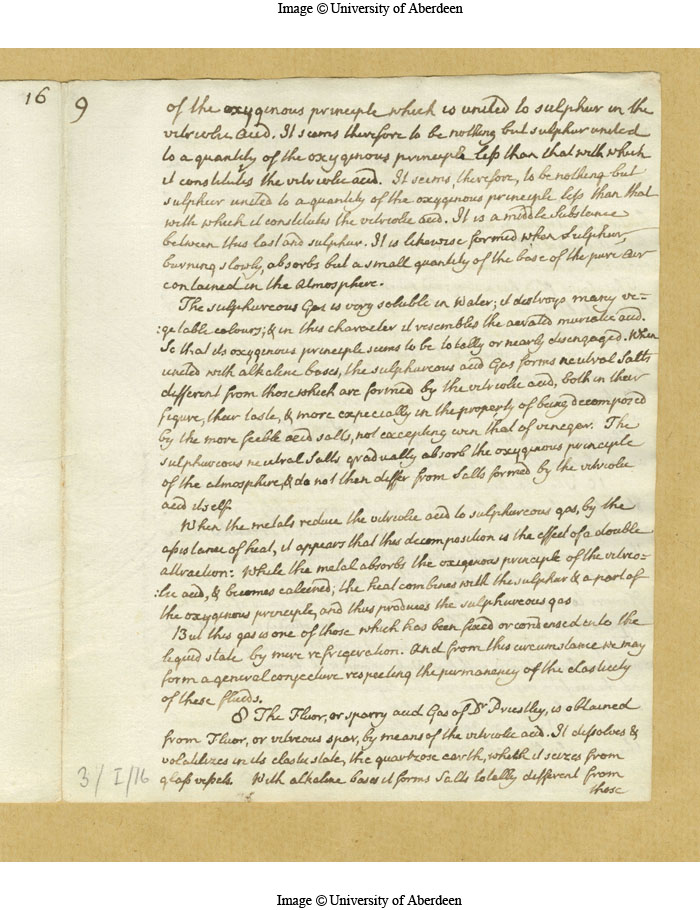 Image © University of Aberdeen
16
9
of the oxyginous principle which is united to sulphur in the
vitriolic acid. It seems therefore to be nothing but sulphur united
to a quantity of the oxyginous principle less than that with which
it constitutes the vitriolic acid. It seems, therefore, to be nothing but
sulphur united to a quantity of the oxyginous principle less than that
with which it constitutes the vitriolic acid. It is a middle Substance
between this last and sulphur. It is likewise formed when Sulphur,
burning slowly, absorbs but a small quantity of the base of the pure air
contained in the Atmosphere.
The sulphureous Gas is very soluble in Water; it destroys many ve=
:getable colours; & in this character it resembles the aerated muriatic acid.
So that its oxyginous principle seems to be totally or nearly disengaged. When
united with alkaline bases, the sulphureous acid Gas forms neutral Salts
different from those which are formed by the vitriolic acid, both in their
figure, their taste, & more expecially in the property of being decomposed
by the more feeble acid salts, not excepting even that of vinegar. The
sulphureous neutral Salts gradually absorb the oxyginous principle
of the atmosphere, & do not then differ from Salts formed by the vitriolic
acid itself.
When the metals reduce the vitriolic acid to sulphureous gas, by the
assistance of heat, it appears that this decomposition is the effect of a double
attraction: While the metal absorbs the oxigenous principle of the vitrio=
:lic acid, & becomes calcined; the heat combines with the sulphur & a part of
the oxyginous principle, and thus produces the sulphureous gas
But this gas is one of those which has been fixed or condensed into the
liquid state by mere refrigeration. And from this circumstance we may
form a general conjecture respecting the permanency of the elasticity
of these fluids.
8 The Fluor, or sparry acid Gas of Dr Priestley, is obtained
from Fluor, or vitreous spar, by means of the vitriolic acid. It dissolves &
volatilizes in its elastic state, the quartzose earth, which it seizes from
glass vessels. With alkaline bases it forms Salts totally different from
those
3/ I/16
Image © University of Aberdeen